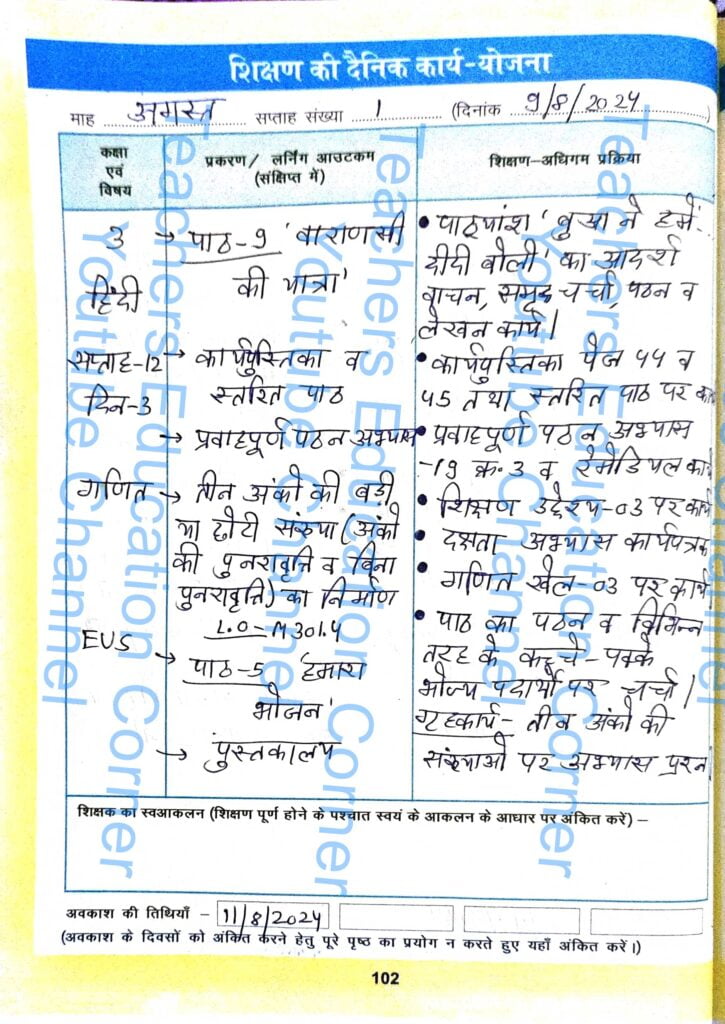 शिक्षण की दैनिक कार्य-योजना
माह अगस्त सप्ताह संख्या 1 (दिनांक 9/8/2024)
कक्षा एवं विषय
प्रकरण/ लर्निंग आउटकम (संक्षिप्त में)
शिक्षण-अधिगम प्रक्रिया
3
हिंदी
सप्ताह-12
दिन-3
गणित
EVS
→ पाठ-9 'वाराणसी
की यात्रा'
→ कार्यपुस्तिका व
स्तरित पाठ
→ प्रवाहपूर्ण पठन अभ्यास
→ तीन अंको की बड़ी
या छोटी संख्या (अंको
की पुनरावृत्ति व बिना
पुनरावृत्ति) का निर्माण
L.O-M301.4
→ पाठ-5 'हमारा
भोजन'
→ पुस्तकालय
• पाठ्यांश 'बुआ ने हमें-
दीदी बोली' का आदर्श
वाचन, समूह चर्चा, पठन व
लेखन कार्य।
• कार्यपुस्तिका पेज 44 व
45 तथा स्तरित पाठ पर
• प्रवाहपूर्ण पठन अभ्यास
-19 क्र.3 व रेमेडियल कार्य
• शिक्षण उद्देश्य-03 पर कार्य
• दक्षता अभ्यास कार्यपत्रक
• गणित खेल-03 पर कार्य
• पाठ का पठन व विभिन्न
तरह के कच्चे-पक्के
भोज्य पदार्थों पर चर्चा।
गृहकार्य- तीन अंको की
संख्याओ पर अभ्यास प्रश्न
शिक्षक का स्वआकलन (शिक्षण पूर्ण होने के पश्चात स्वयं के आकलन के आधार पर अंकित करें) –
अवकाश की तिथियाँ – 11/8/2024
(अवकाश के दिवसों को अंकित करने हेतु पूरे पृष्ठ का प्रयोग न करते हुए यहाँ अंकित करें।)
102
Teachers Education Corner
Youtube Channel
Teachers Education Corner
Youtube Channel
Teachers Education Corner
Youtube Channel